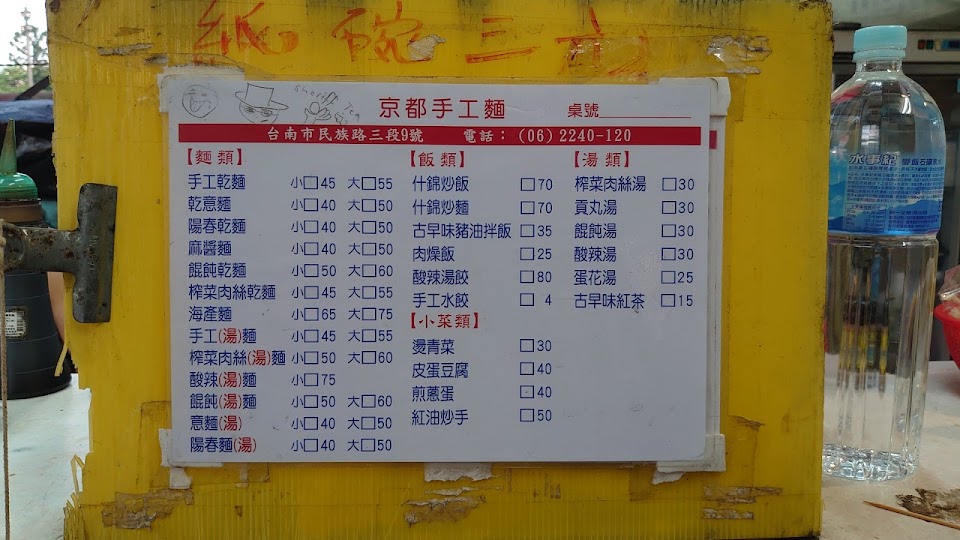 紙碗三元
京都手工麵 桌號
台南市民族路三段9號 電話：(06) 2240-120
【麵 類】
手工乾麵 小□45 大□55
乾意麵 小□40 大□50
陽春乾麵 小□40 大□50
麻醬麵 小□40 大□50
餛飩乾麵 小□50 大□60
榨菜肉絲乾麵 小□45 大□55
海產麵 小□65 大□75
手工(湯)麵 小□45 大□55
榨菜肉絲(湯)麵 小□50 大□60
酸辣(湯)麵 小□75
餛飩(湯)麵 小□50 大□60
意麵(湯) 小□40 大□50
陽春麵(湯) 小□40 大□50
【飯 類】
什錦炒飯 □70
什錦炒麵 □70
古早味豬油拌飯 □35
肉燥飯 □25
酸辣湯餃 □80
手工水餃 □ 4
【小菜類】
燙青菜 □30
皮蛋豆腐 □40
煎蔥蛋 □40
紅油炒手 □50
【湯 類】
榨菜肉絲湯 □30
貢丸湯 □30
餛飩湯 □30
酸辣湯 □30
蛋花湯 □25
古早味紅茶 □15
水事紀